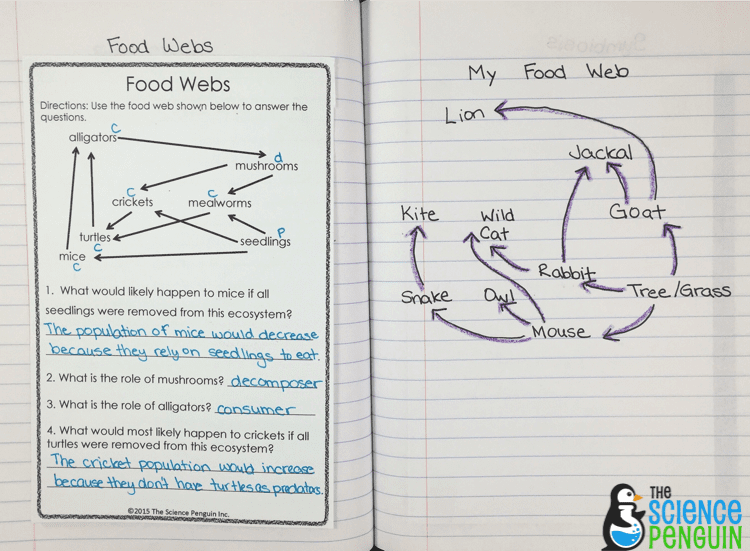 Food Webs
Food Webs
Directions: Use the food web shown below to answer the
questions.
alligators C
mushrooms d
crickets C
mealworms C
turtles C
seedlings P
mice C
1. What would likely happen to mice if all
seedlings were removed from this ecosystem?
The population of mice would decrease
because they rely on seedlings to eat.
2. What is the role of mushrooms? decomposer
3. What is the role of alligators? consumer
4. What would most likely happen to crickets if all
turtles were removed from this ecosystem?
The cricket population would increase
because they don't have turtles as predators.
©2015 The Science Penguin Inc.
My Food Web
Lion
Jackal
Kite
Wild
Cat
Goat
Rabbit
Snake
Owl
Tree/Grass
Mouse
THE
SCIENCE
PENGUIN